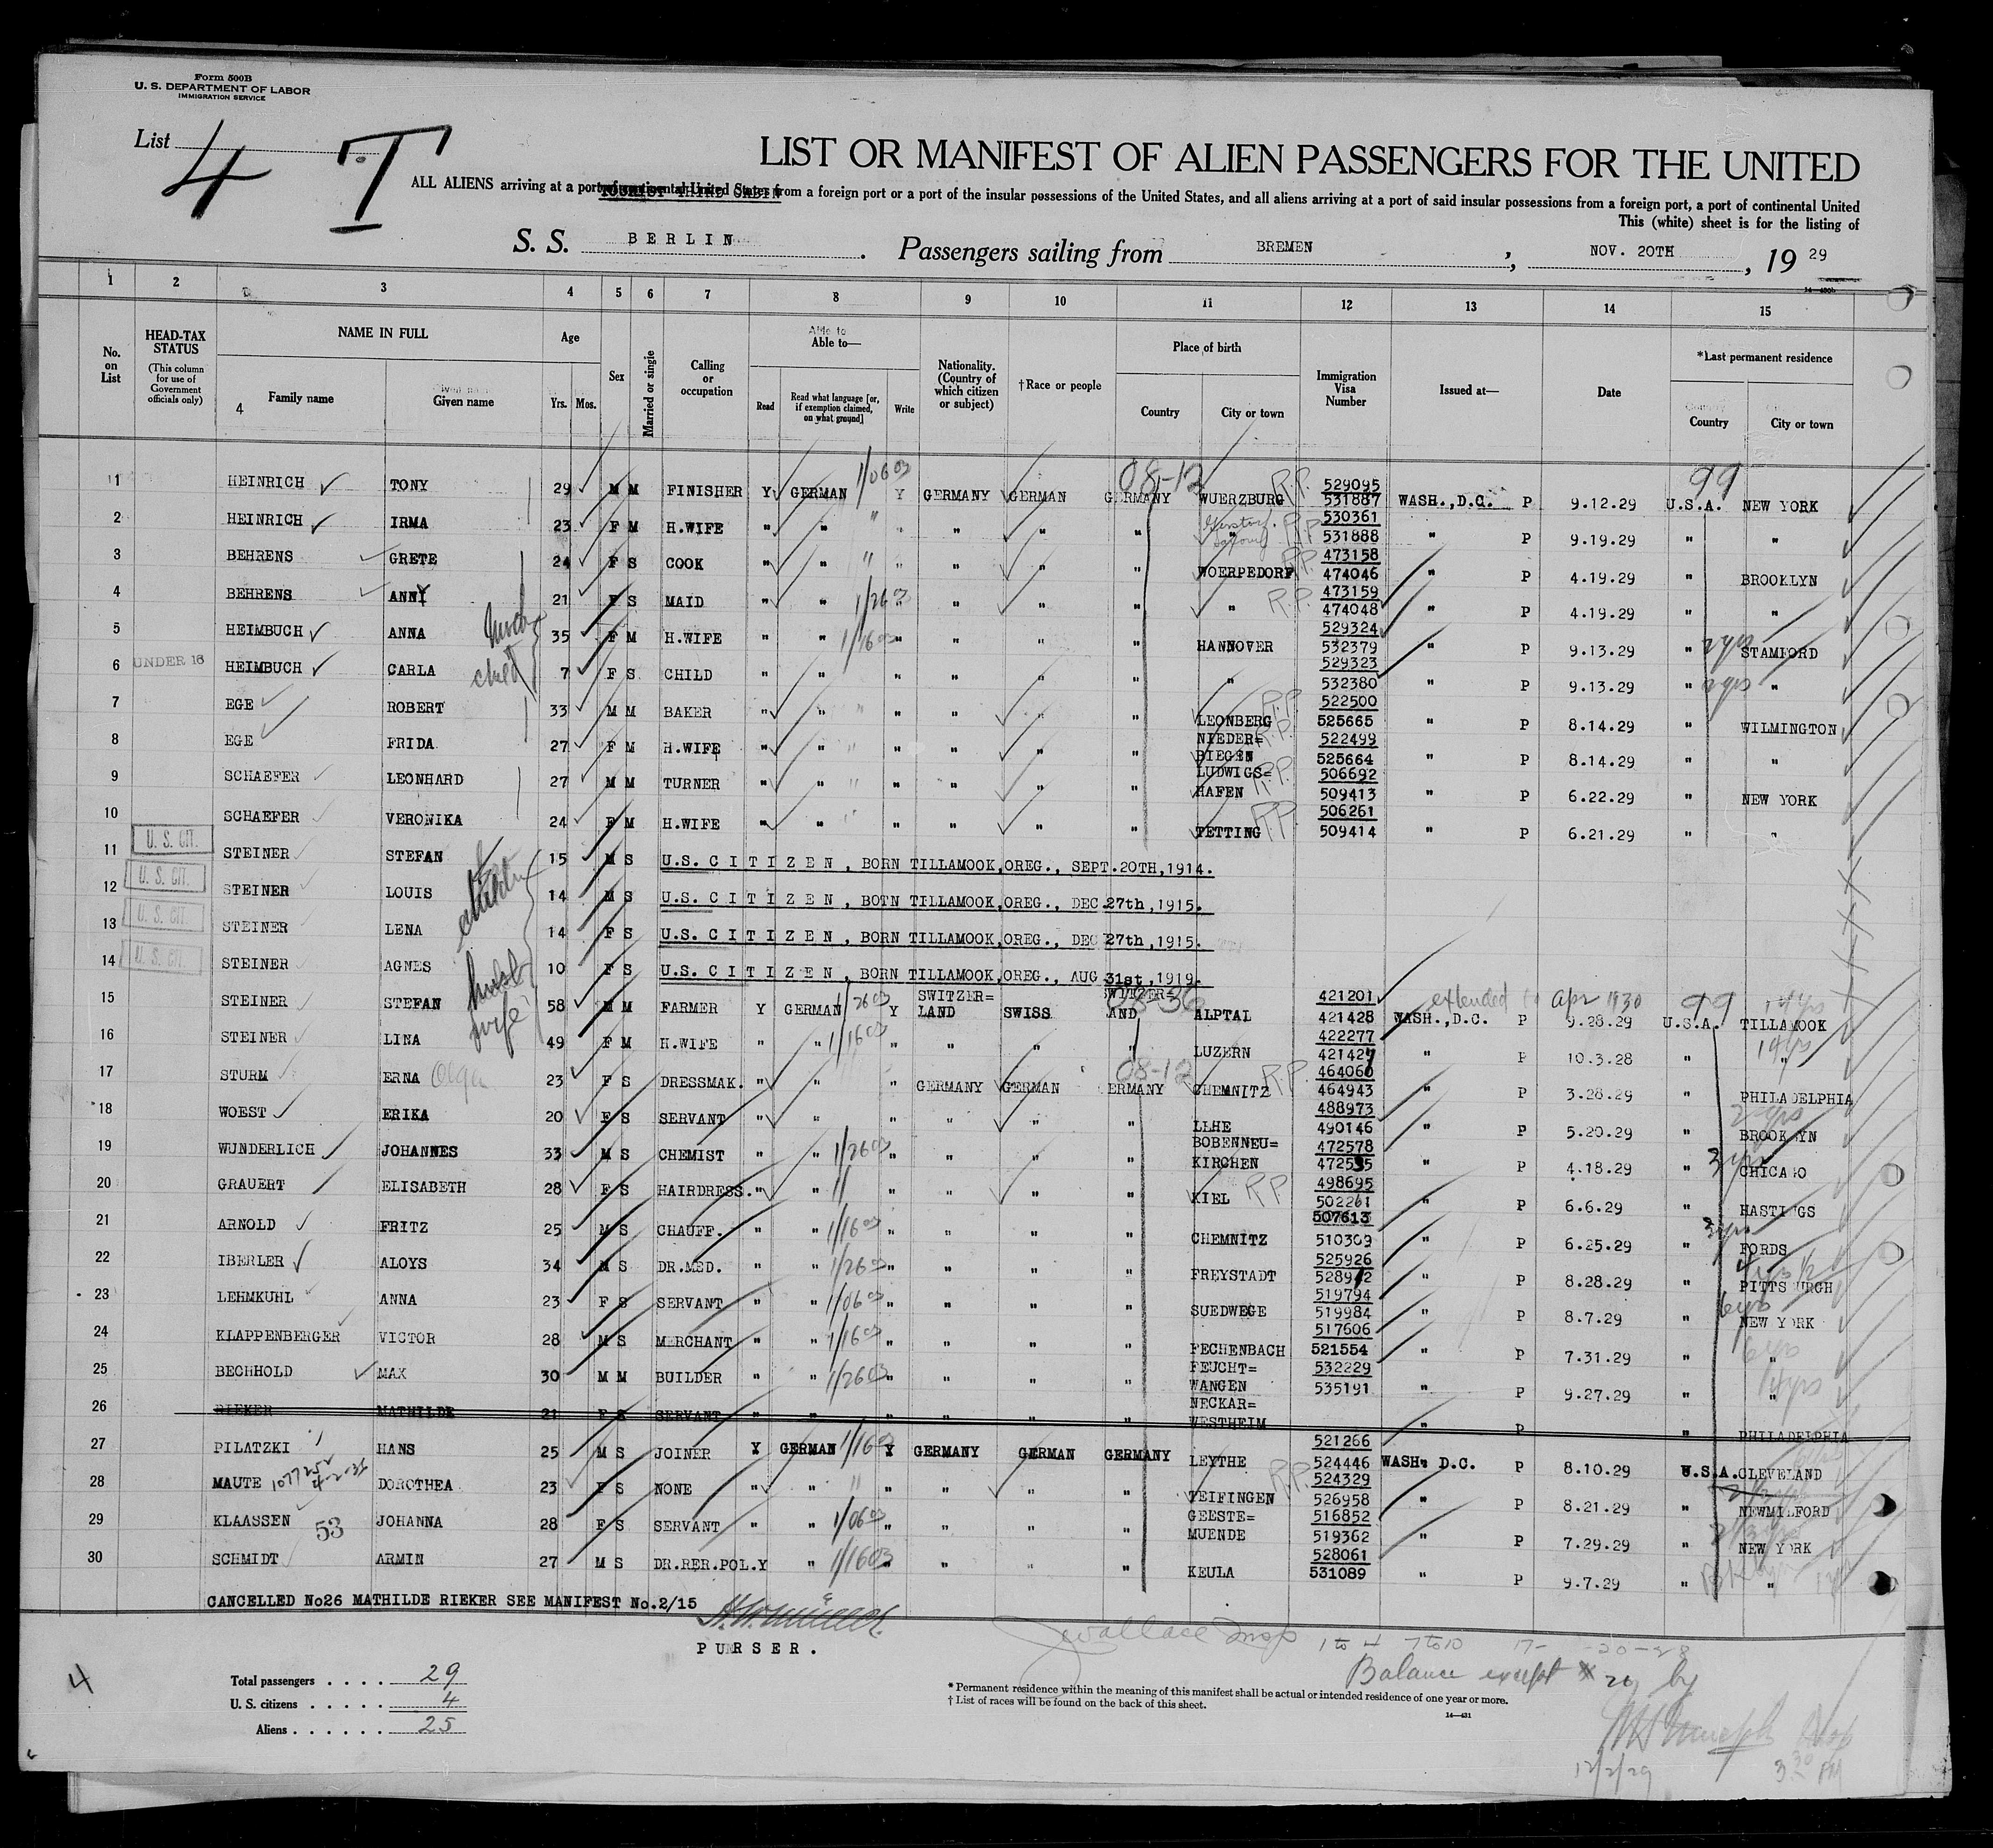 Form 500B
U. S. DEPARTMENT OF LABOR
IMMIGRATION SERVICE
List 4 T
LIST OR MANIFEST OF ALIEN PASSENGERS FOR THE UNITED
ALL ALIENS arriving at a port of continental United States from a foreign port or a port of the insular possessions of the United States, and all aliens arriving at a port of said insular possessions from a foreign port, a port of continental United
TOURIST THIRD CABIN
This (white) sheet is for the listing of
S. S. BERLIN. Passengers sailing from BREMEN, NOV. 20TH, 19 29
1 2 3 4 5 6 7 8 9 10 11 12 13 14 15
No. on List
HEAD-TAX STATUS
(This column for use of Government officials only)
NAME IN FULL
4 Family name Given name
Age
Yrs. Mos.
Sex
Married or single
Calling or occupation
Able to—
Read Read what language [or, if exemption claimed, on what ground] Write
Nationality. (Country of which citizen or subject)
†Race or people
Place of birth
Country City or town
Immigration Visa Number
Issued at—
Date
*Last permanent residence
Country City or town
1 HEINRICH TONY 29 M M FINISHER Y GERMAN 1/0603 Y GERMANY GERMAN GERMANY 08-12 WUERZBURG R.P. 529095 531887 WASH.,D.C. P 9.12.29 U.S.A. 99 NEW YORK
2 HEINRICH IRMA 23 F M H.WIFE " " " " " " " R.P. 530361 531888 " P 9.19.29 " "
3 BEHRENS GRETE 24 F S COOK " " " " " " WOERPEDORF R.P. 473158 474046 " P 4.19.29 " BROOKLYN
4 BEHRENS ANNY 21 F S MAID " " " " " " " R.P. 473159 474048 " P 4.19.29 " "
5 HEIMBUCH ANNA 35 F M H.WIFE " " 1/1603 " " " " HANNOVER 529324 532379 " P 9.13.29 " 2yrs STAMFORD
6 UNDER 16 HEIMBUCH CARLA child 7 F S CHILD " " " " " " " 529323 532380 " P 9.13.29 " 2yrs "
7 EGE ROBERT 33 M M BAKER " " " " " " LEONBERG R.P. 522500 525665 " P 8.14.29 " WILMINGTON
8 EGE FRIDA 27 F M H.WIFE " " " " " " NIEDER= BIEGEN R.P. 522499 525664 " P 8.14.29 " "
9 SCHAEFER LEONHARD 27 M M TURNER " " " " " " LUDWIGS= HAFEN R.P. 506692 509413 " P 6.22.29 " NEW YORK
10 SCHAEFER VERONIKA 24 F M H.WIFE " " " " " " PETTING R.P. 506261 509414 " P 6.21.29 " "
11 U. S. CIT. STEINER STEFAN 15 M S U.S. CITIZEN, BORN TILLAMOOK,OREG., SEPT.20TH,1914.
12 U. S. CIT. STEINER LOUIS 14 M S U.S. CITIZEN, BOTN TILLAMOOK,OREG., DEC 27th,1915.
13 U. S. CIT. STEINER LENA 14 F S U.S. CITIZEN, BORN TILLAMOOK,OREG., DEC 27th,1915.
14 U. S. CIT. STEINER AGNES 10 F S U.S. CITIZEN, BORN TILLAMOOK,OREG., AUG 31st,1919.
15 STEINER STEFAN husb 58 M M FARMER Y GERMAN Y SWITZER= LAND SWISS SWITZER= LAND ALPTAL 421201 421428 WASH.,D.C. extended to Apr 1930 P 9.28.29 U.S.A. 99 14yrs TILLAMOOK
16 STEINER LINA wife 49 F M H.WIFE " " 1/1603 " " " " LUZERN 422277 421427 " P 10.3.28 " 14yrs "
17 STURM ERNA Olga 23 F S DRESSMAK. " " " GERMANY GERMAN GERMANY 08-12 CHEMNITZ R.P. 464060 464943 " P 3.28.29 " PHILADELPHIA
18 WOEST ERIKA 20 F S SERVANT " " " " " " LLHE 488973 490146 " P 5.20.29 " 2yrs BROOKLYN
19 WUNDERLICH JOHANNES 33 M S CHEMIST " " 1/2603 " " " " BOBENNEU= KIRCHEN 472578 472535 " P 4.18.29 " 3yrs CHICAGO
20 GRAUERT ELISABETH 28 F S HAIRDRESS. " " " " " " " KIEL R.P. 498695 502261 " P 6.6.29 " HASTINGS
21 ARNOLD FRITZ 25 M S CHAUFF. " " 1/1603 " " " " CHEMNITZ 507613 510309 " P 6.25.29 " 3yrs FORDS
22 IBERLER ALOYS 34 M S DR.MED. " " 1/2603 " " " " FREYSTADT 525926 528912 " P 8.28.29 " PITTSBURGH
23 LEHMKUHL ANNA 23 F S SERVANT " " 1/0603 " " " " SUEDWEGE 519794 519984 " P 8.7.29 " 6yrs NEW YORK
24 KLAPPENBERGER VICTOR 28 M S MERCHANT " " 1/1603 " " " " PECHENBACH 517606 521554 " P 7.31.29 " 6yrs "
25 BECHHOLD MAX 30 M M BUILDER " " 1/2603 " " " " FEUCHT= WANGEN 532229 535191 " P 9.27.29 " "
26 RIEKER MATHILDE 21 F S SERVANT " " " " " " NECKAR= WESTHEIM " P " PHILADELPHIA
27 PILATZKI HANS 25 M S JOINER Y GERMAN 1/1603 Y GERMANY GERMAN GERMANY LEYTHE 521266 524446 WASH. D.C. P 8.10.29 U.S.A. CLEVELAND
28 MAUTE DOROTHEA 23 F S NONE " " " " " " " TEIFINGEN R.P. 524329 526958 " P 8.21.29 " NEWMILFORD
29 KLAASSEN 53 JOHANNA 28 F S SERVANT " " 1/0603 " " " " GEESTE= MUENDE 516852 519362 " P 7.29.29 " NEW YORK
30 SCHMIDT ARMIN 27 M S DR.RER.POL. Y " 1/1603 " " " " KEULA 528061 531089 " P 9.7.29 " "
CANCELLED No26 MATHILDE RIEKER SEE MANIFEST No.2/15
PURSER.
Wallace Insp 1 to 4 7 to 10 17- -20-28
Balance except 26 by
4
Total passengers . . . . 29
U. S. citizens . . . . . 4
Aliens . . . . . . 25
* Permanent residence within the meaning of this manifest shall be actual or intended residence of one year or more.
† List of races will be found on the back of this sheet.
14—431
12/2/29 3 30 PM